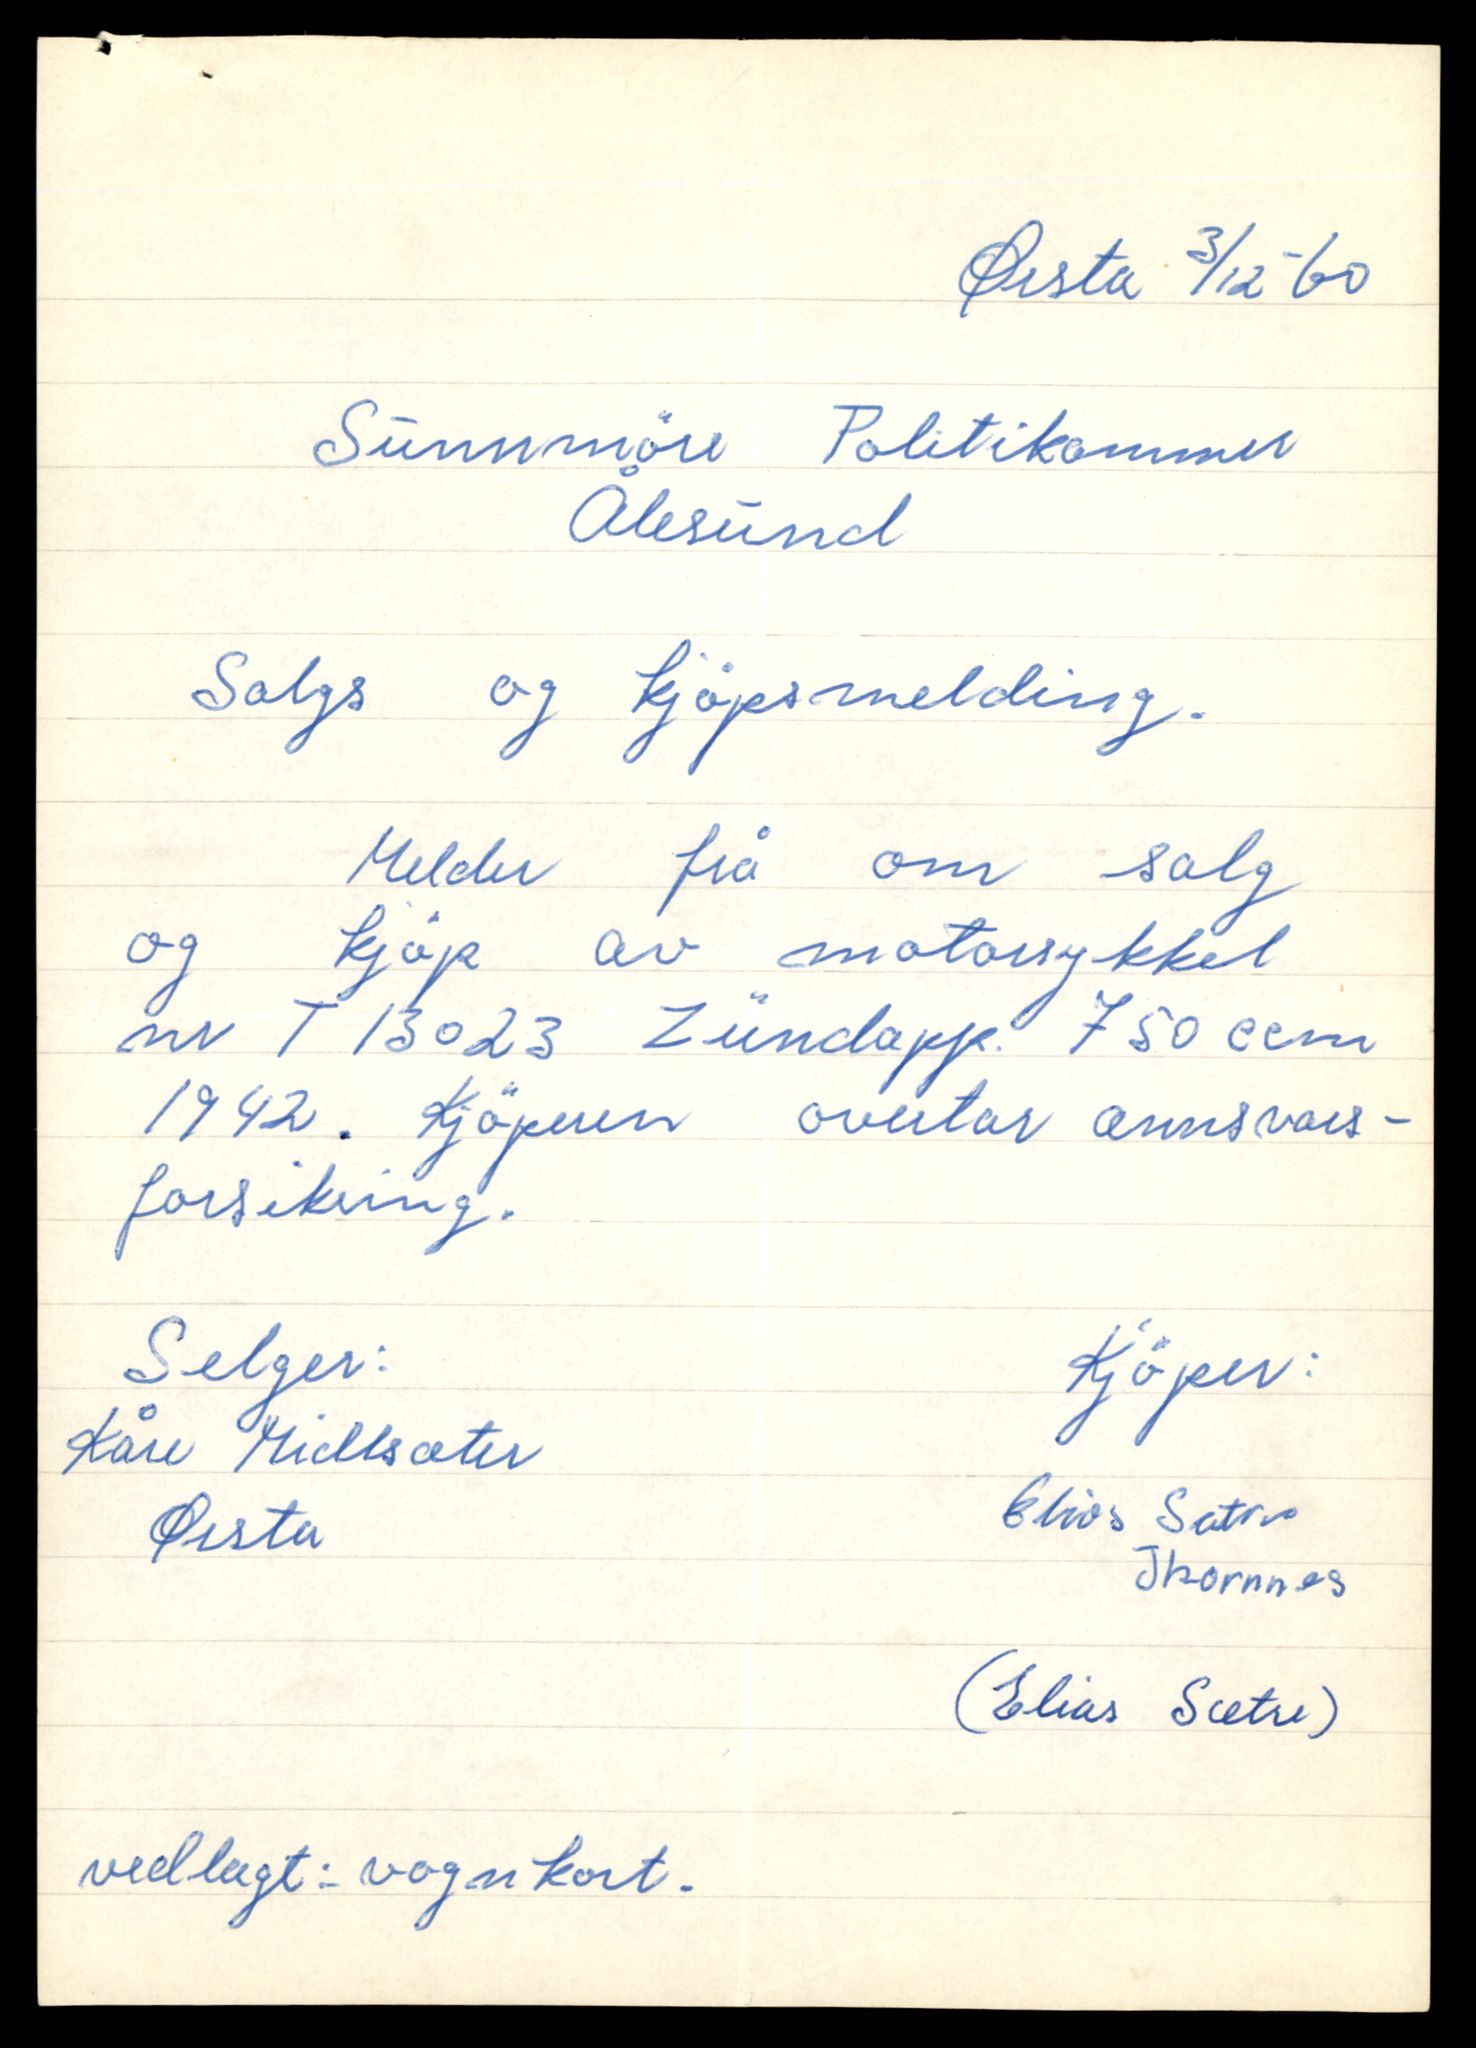 Ørsta 3/12-60
Sunnmöre Politikammer
Ålesund
Salgs og kjöpsmelding.
Melder frå om salg
og kjöp av motorsykkel
nr T 13023 Zündapp. 750 ccm
1942. Kjöperen overtar annsvars-
forsikring.
Selger:
Kåre Midtsæter
Ørsta
Kjöper:
Elias Sætre
Ikornnes
(Elias Sætre)
vedlagt:- vognkort.